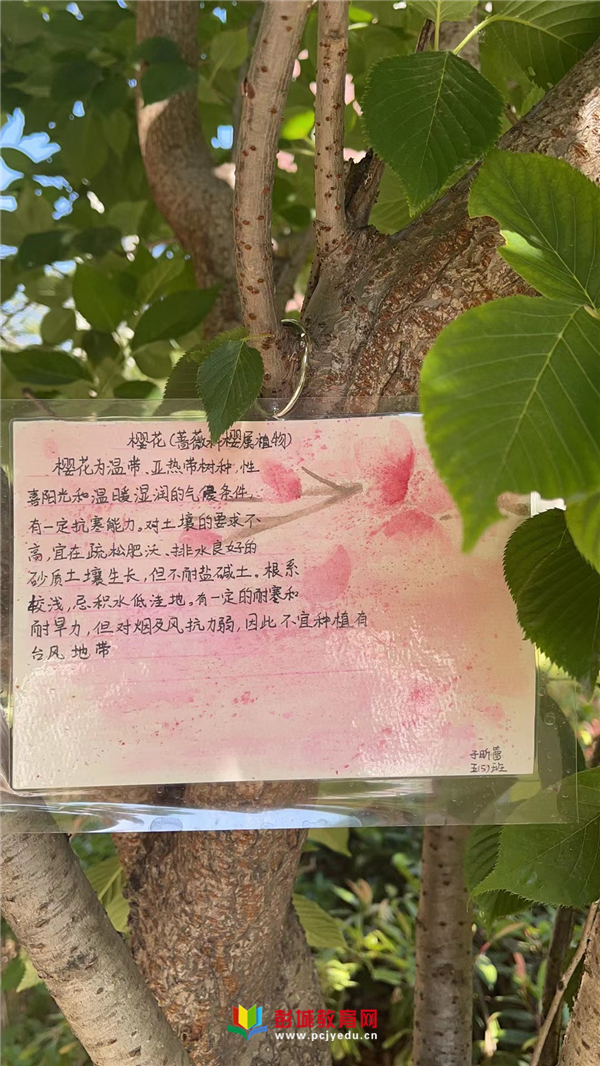 樱花(蔷薇科樱属植物)
樱花为温带、亚热带树种,性
喜阳光和温暖湿润的气候条件,
有一定抗寒能力。对土壤的要求不
高,宜在疏松肥沃、排水良好的
砂质土壤生长,但不耐盐碱土。根系
较浅,忌积水低洼地。有一定的耐寒和
耐旱力,但对烟及风抗力弱,因此不宜种植有
台风地带
五(5)班
彭城教育网
www.pcjyedu.cn